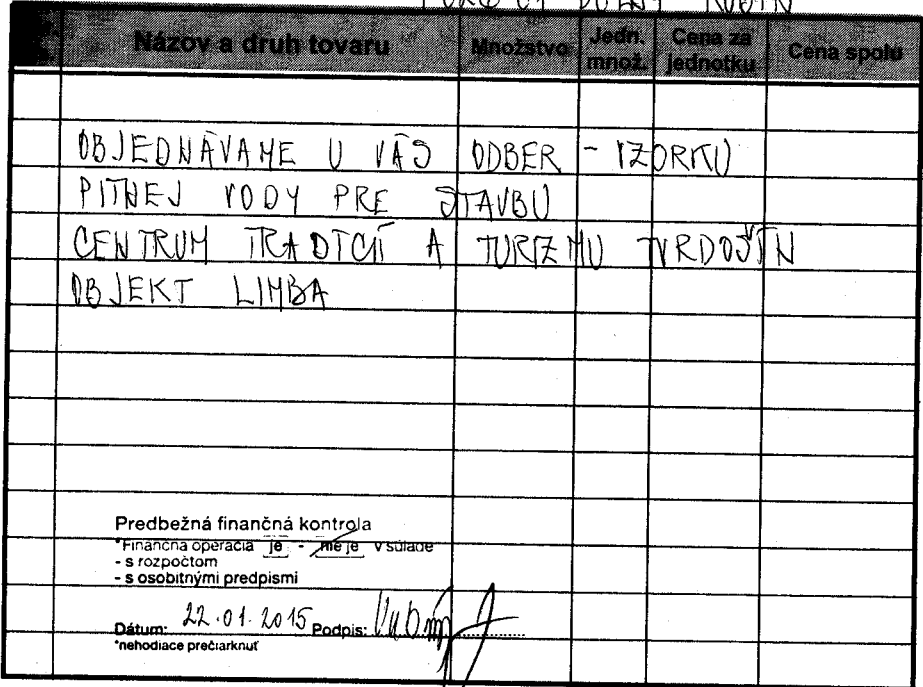 DOLNÝ KUBÍN
Názov a druh tovaru Množstvo Jedn. množ. Cena za jednotku Cena spolu
OBJEDNÁVAME U VÁS ODBER - VZORKU
PITNEJ VODY PRE STAVBU
CENTRUM TRADÍCIÍ A TURIZMU TVRDOŠÍN
OBJEKT LIMBA
Predbežná finančná kontrola
*Finančná operácia je - nie je v súlade
- s rozpočtom
- s osobitnými predpismi
Dátum: 22.01.2015 Podpis:
*nehodiace prečiarknuť